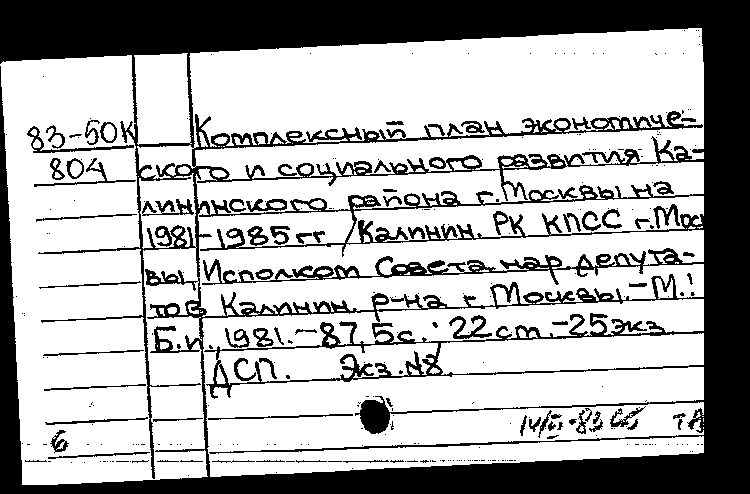 83-50К Комплексный план экономиче-
804 ского и социального развития Ка-
лининского района г. Москвы на
1981-1985 гг. /Калинин. РК КПСС г. Моск
вы, Исполком Совета нар. депута-
тов Калинин. р-на г. Москвы.-М.:
Б.и., 1981.-87, 5 с.; 22 см.-25 экз.
ДСП. Экз. №8.
6